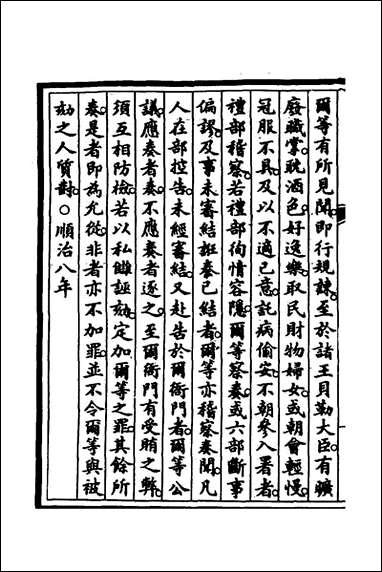 爾等有所見聞即行規諫至於諸王貝勒大臣有曠
廢職掌耽酒色好逸樂取民財物婦女或朝會輕慢
冠服不具及以不適已意託病偷安不朝參入署者
禮部稽察若禮部徇情容隱爾等察奏或六部斷事
偏謬及事未審結誑奏已結者爾等亦稽察奏聞凡
人在部控告未經審結又赴告於爾衙門者爾等公
議應奏者奏不應奏者逐之至爾衙門有受賄之弊
須互相防檢若以私讎誣劾定加爾等之罪其餘所
奏是者即為允從非者亦不加罪並不令爾等與被
劾之人質對○順治八年